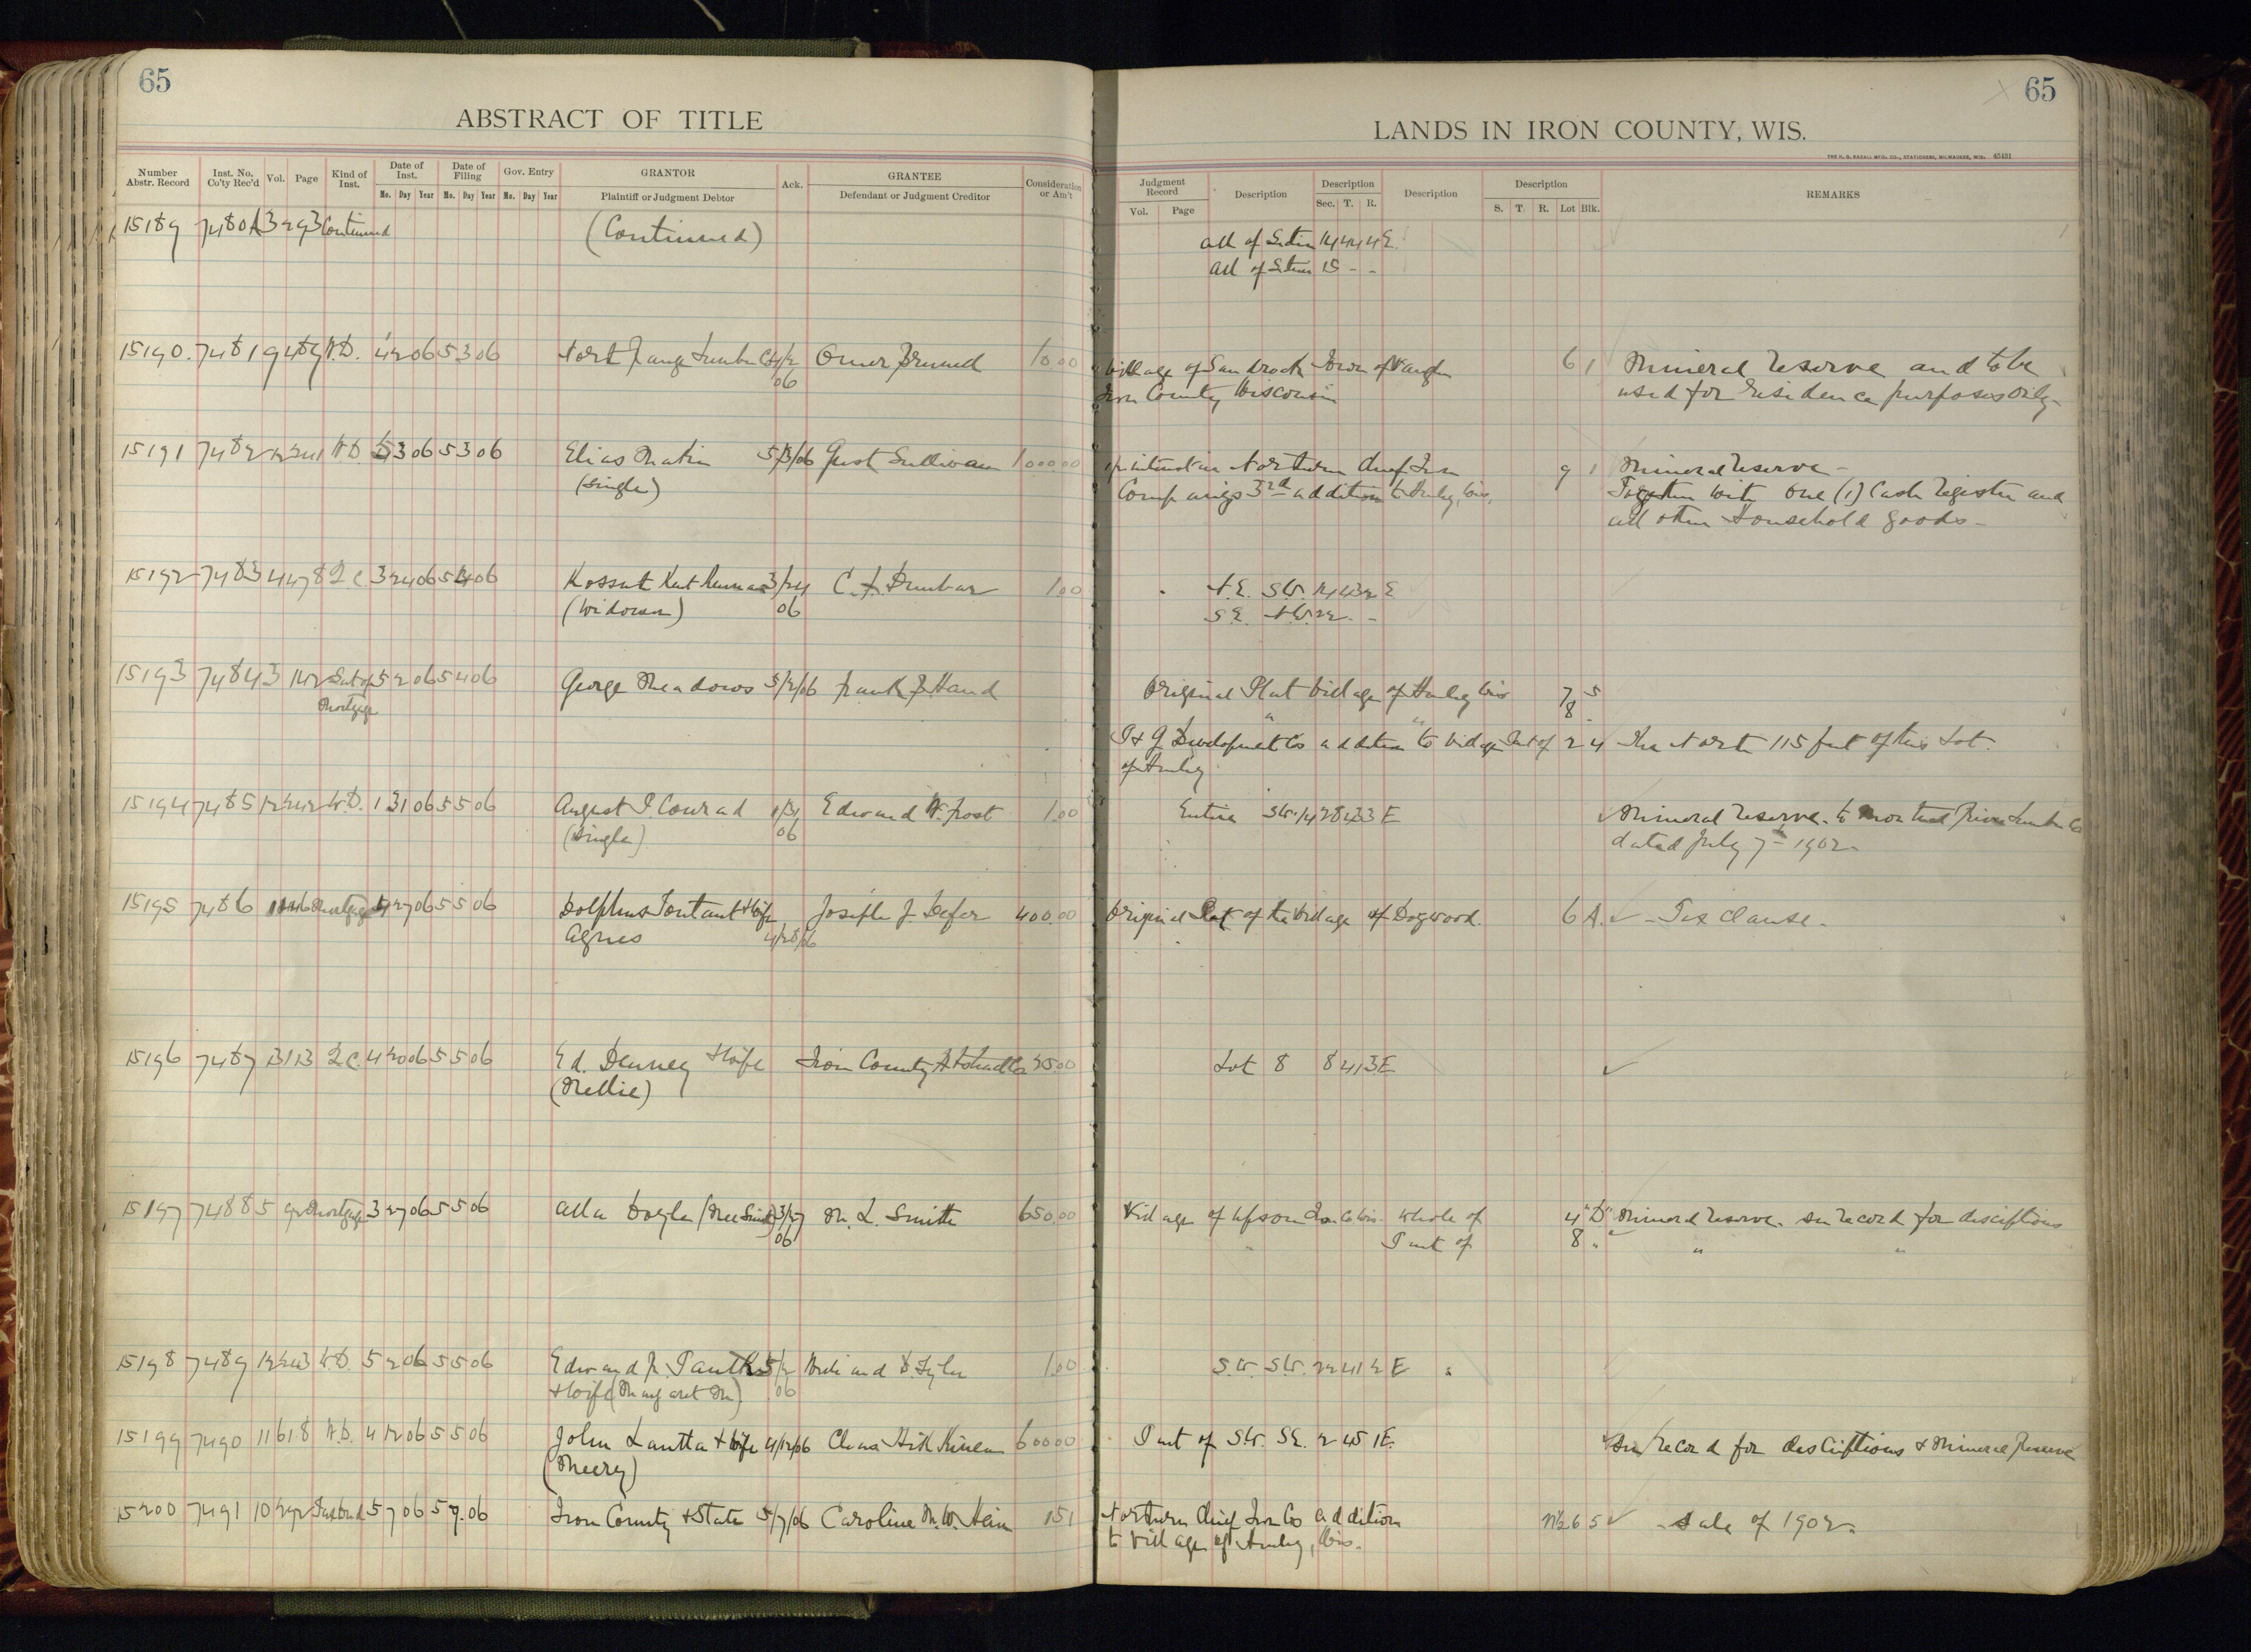 65
ABSTRACT OF TITLE
Number Abstr. Record Inst. No. Co'ty Rec'd Vol. Page Kind of Inst. Date of Inst. Mo. Day Year Date of Filing Mo. Day Year Gov. Entry Mo. Day Year GRANTOR Plaintiff or Judgment Debtor Ack. GRANTEE Defendant or Judgment Creditor Consideration or Am't
15189 7480 A 3 293 Continued (Continued)
15190. 7481 9 489 W.D. 4 2 06 5 3 06 4/2 Omer Brunud 10.00
06
15191 7482 12 241 W.D. 5 3 06 5 3 06 Elias Matin 5/3/06 Gust Sullivan 1000.00
(Single)
15192 7483 4 478 Q.C. 3 24 06 5 4 06 3/24 C. F. Dunbar 1.00
(Widower) 06
15193 7484 3 142 Sat of 5 2 06 5 4 06 George Meadows 5/2/06 Frank J. Hand
Mortgage
15194 7485 12 242 W.D. 1 31 06 5 5 06 August P. Conrad 1/31 Edward W. Frost 1.00
(Single) 06
15195 7486 11 46 Mortgage 4 27 06 5 5 06 Dolphus Tontant & Wife Joseph J. Defer 400.00
Agnes 4/28/06
15196 7487 13 113 Q.C. 4 20 06 5 5 06 Ed. Denney & Wife Iron County Abstract Co 25.00
(Nellie)
15197 7488 5 92 Mortgage 3 27 06 5 5 06 Alla Doyle (Nee Smith) 3/27 M. L. Smith 650.00
06
15198 7489 12 243 W.D. 5 2 06 5 5 06 Edward J. 5/2 1.00
& Wife (Margaret M.) 06
15199 7490 11 618 W.D. 4 12 06 5 5 06 John Lantta & Wife 4/12/06 600.00
15200 7491 10 292 Tax Deed 5 7 06 5 7.06 Iron County & State 5/7/06 Caroline M. W. Hein 1.51
65
LANDS IN IRON COUNTY, WIS.
THE H. G. RAZALL MFG. CO., STATIONERS, MILWAUKEE, WIS. 45431
Judgment Record Vol. Page Description Description Sec. T. R. Description Description S. T. R. Lot Blk. REMARKS
All of Section 14 44 4 E.
All of Section 15 - -
Village of Sandrock Town of Vaughn 6 1 Mineral Reserve and to be
Iron County Wisconsin used for residence purposes only-
interest in Northern Chief Iron 9 1 Mineral Reserve-
Company's 3rd addition to Hurley, Wis. Together with one (1) Cash Register and
all other Household goods-
N.E. S.W. 14 43 2 E
S.E. N.W. 22 - -
Original Plat Village of Hurley Wis 7 5
" " 8 "
P & G Development Co addition to Village Part of 2 4 The North 115 feet of this Lot.
of Hurley
Entire S.W. 1/4 28 43 3 E Mineral Reserve. to Montreal River Lumber Co
dated July 7th 1902.
Original Plat of the Village of Dogwood. 6 A. - Tax Clause.
Lot 8 8 41 3 E
Village of Upson Iron Co Wis. Whole of 4 "D" Mineral Reserve. See record for descriptions
" Part of 8 " " "
S.W. S.W. 22 41 2 E "
Part of S.W. S.E. 2 45 1 E. See record for descriptions & Mineral Reserve
Northern Chief Iron Co addition N½ 6 5 - Sale of 1902.
to Village of Hurley, Wis.